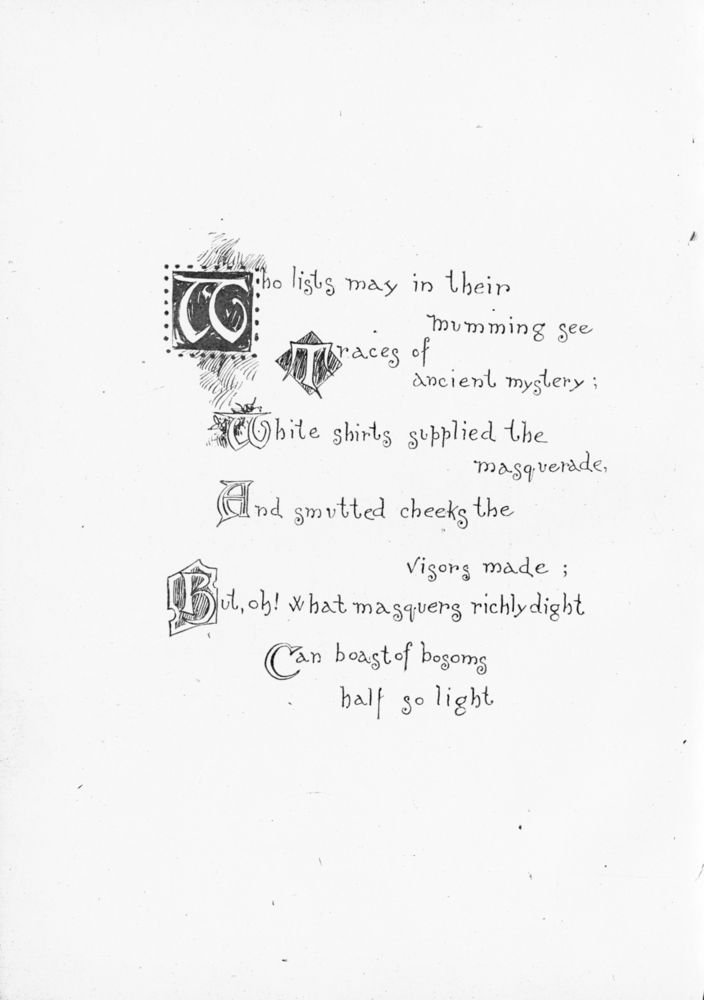 Who lists may in their
mumming see
Traces of
ancient mystery;
White shirts supplied the
masquerade,
And smutted cheeks the
visors made;
But, oh! what masquers richly dight
Can boast of bosoms
half so light